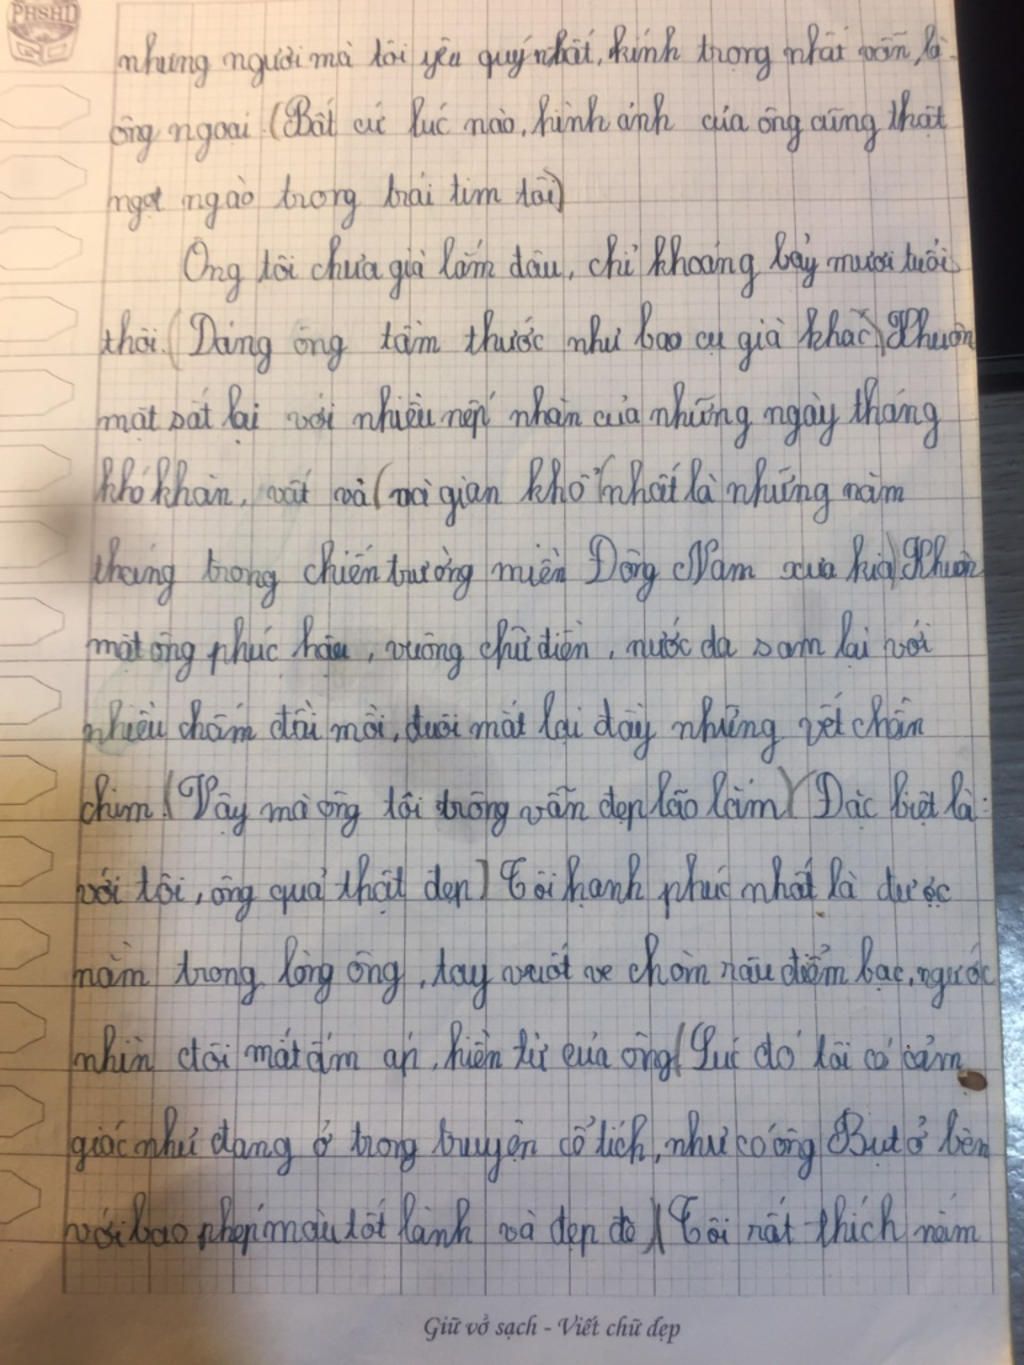 PHSHD
nhưng người mà tôi yêu quý nhất, kính trọng nhất vẫn là
ông ngoại (Bất cứ lúc nào, hình ảnh của ông cũng thật
ngọt ngào trong trái tim tôi)
Ông tôi chưa già lắm đâu, chỉ khoảng bảy mươi tuổi
thôi. (Dáng ông tầm thước như bao cụ già khác) Khuôn
mặt sắt lại với nhiều nếp nhăn của những ngày tháng
khó khăn, vất vả (và gian khổ (nhất là những năm
tháng trong chiến trường miền Đông Nam xưa kia) Khuôn
mặt ông phúc hậu, vuông chữ điền, nước da sam lại với
nhiều chấm đồi mồi, đuôi mắt lại đầy những vết chân
chim. (Vậy mà ông tôi trông vẫn đẹp lão lắm) (Đặc biệt là:
với tôi, ông quả thật đẹp) Tôi hạnh phúc nhất là được
nằm trong lòng ông, tay vuốt ve chòm râu điểm bạc, ngước
nhìn đôi mắt ấm áp, hiền từ của ông (Lúc đó tôi có cảm
giác như đang ở trong truyện cổ tích, như có ông Bụt ở bên
với bao phép màu tốt lành và đẹp đẽ) (Tôi rất thích nằm
Giữ vở sạch - Viết chữ đẹp